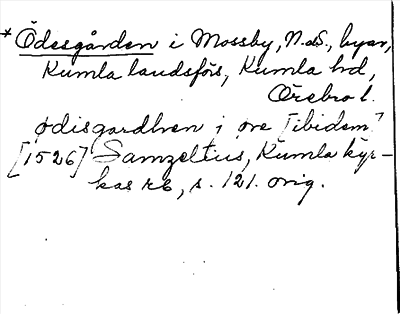 * Ödesgården i Mossby, N. o S., byar,
Kumla landsförs, Kumla hd,
Örebro l.
ødisgardhen i øre [ibidem?
[1526] Samzelius, Kumla kyr-
kas rb, s. 121. orig.